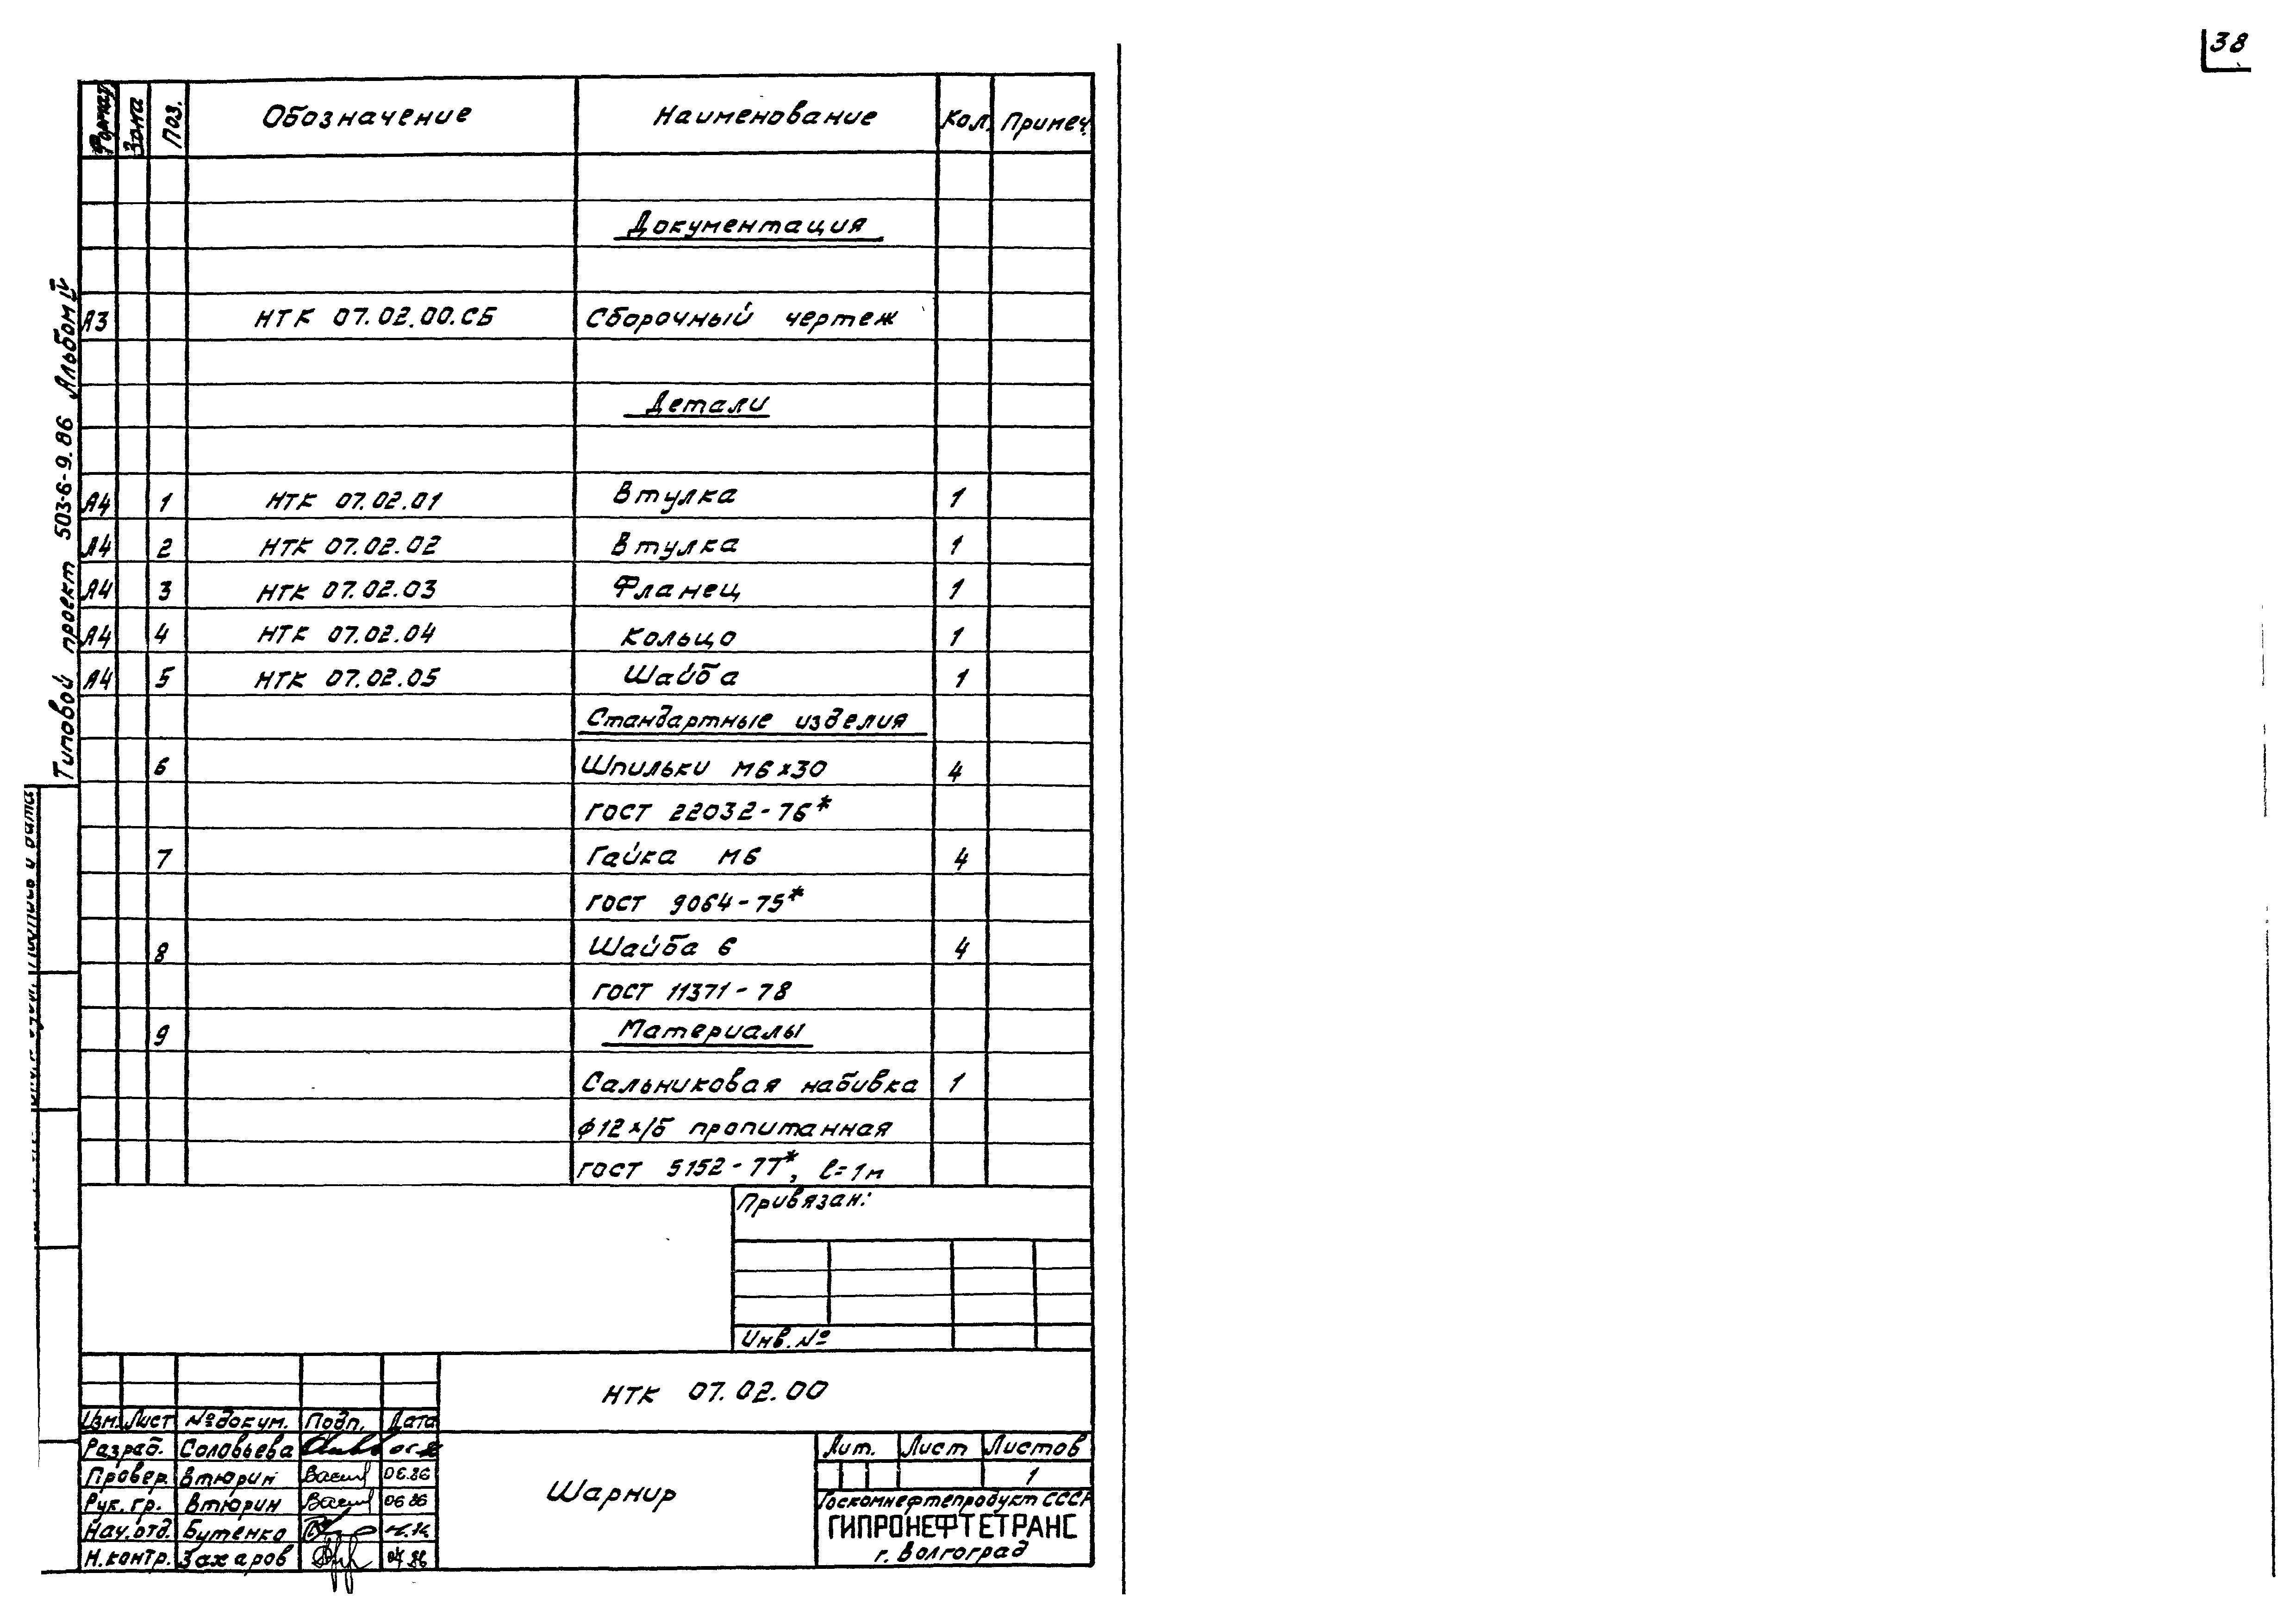 38
Типовой проект 503-6-9.86 Альбом IV
Формат Зона Поз. Обозначение Наименование Кол. Примеч.
Документация
А3 НТК 07.02.00.СБ Сборочный чертеж
Детали
А4 1 НТК 07.02.01 Втулка 1
А4 2 НТК 07.02.02 Втулка 1
А4 3 НТК 07.02.03 Фланец 1
А4 4 НТК 07.02.04 Кольцо 1
А4 5 НТК 07.02.05 Шайба 1
Стандартные изделия
6 Шпильки М6х30 4
ГОСТ 22032-76*
7 Гайка М6 4
ГОСТ 9064-75*
8 Шайба 6 4
ГОСТ 11371-78
9 Материалы
Сальниковая набивка 1
ф12 х/б пропитанная
ГОСТ 5152-77*, ℓ=1м
Привязан:
Инв. №
НТК 07.02.00
Изм. Лист № докум. Подп. Дата
Разраб. Соловьева
Провер. Втюрин 06.86
Рук. гр. Втюрин 06 86
Нач. отд. Бутенко
Н. контр. Захаров
Шарнир
Лит. Лист Листов
1
Госкомнефтепродукт СССР
ГИПРОНЕФТЕТРАНС
г. Волгоград